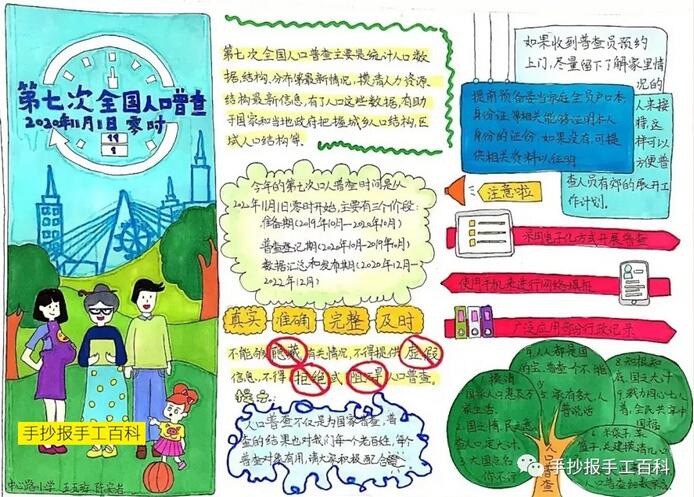 第七次全国人口普查
2020年11月1日零时
手抄报手工百科
中心路小学
第七次全国人口普查主要是统计人口数
据,结构,分布等最新情况,摸清人力资源,
结构最新信息,有了人口这些数据,有助
于国家和当地政府把握城乡人口结构,区
域人口结构等。
今年的第七次人口普查时间是从
2020年11月1日零时开始,主要有三个阶段:
准备期(2019年10月—2020年10月)
普查登记期(2020年10月—2019年10月)
数据汇总和发布期(2020年12月—
2022年12月)
真实 准确 完整 及时
不能够隐藏有关情况,不得提供虚假
信息,不得拒绝或阻碍人口普查。
提示:
人口普查不仅是为国家普查,普
查的结果也对我们每一个老百姓,每个
普查对象有用,请大家积极配合
如果收到普查员预约
上门,尽量留下了解家里情
况的
人来接
待,这
样可以
方便普
查人员有效的展开工
作计划。
提前预备妥当家庭全员户口本,
身份证等相关能够证明本人
身份的证份,如果没有,可提
供相关资料以证明
注意啦
采用电子化方式开展普查
使用手机来进行网络填报
广泛应用部分行政记录
人口普查
手抄报手工百科